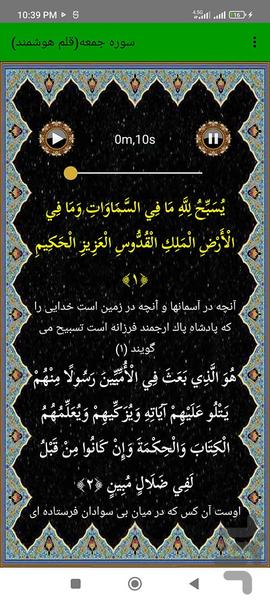 10:39 PM
4.5G
16
سوره جمعه(قلم هوشمند)
0m,10s
يُسَبِّحُ لِلَّهِ مَا فِي السَّمَاوَاتِ وَمَا فِي
الْأَرْضِ الْمَلِكِ الْقُدُّوسِ الْعَزِيزِ الْحَكِيمِ
﴿۱﴾
آنچه در آسمانها و آنچه در زمين است خدايى را
كه پادشاه پاك ارجمند فرزانه است تسبيح مى
گويند (۱)
هُوَ الَّذِي بَعَثَ فِي الْأُمِّيِّينَ رَسُولًا مِنْهُمْ
يَتْلُو عَلَيْهِمْ آيَاتِهِ وَيُزَكِّيهِمْ وَيُعَلِّمُهُمُ
الْكِتَابَ وَالْحِكْمَةَ وَإِنْ كَانُوا مِنْ قَبْلُ
لَفِي ضَلَالٍ مُبِينٍ ﴿۲﴾
اوست آن كس كه در ميان بى سوادان فرستاده اى